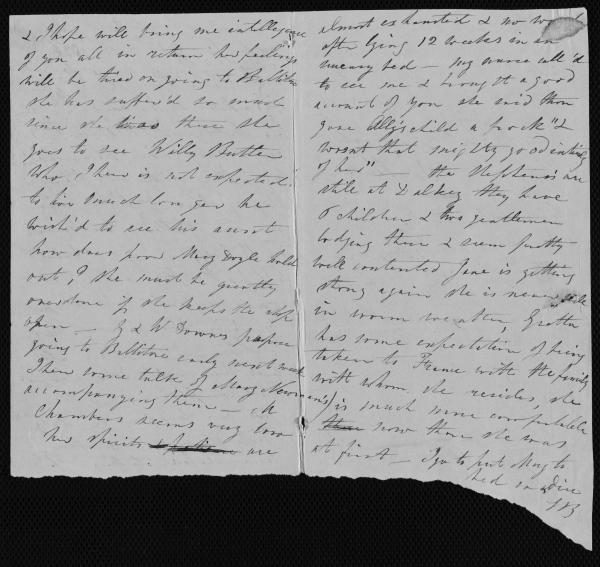 & I hope will bring me intelligence
of you all in return her feelings
will be tried on going to Ballitore
she has suffer'd so much
since she was there she
goes to see Willy Butler
who I hear is not expected
to live much longer he
wish'd to see his aunt
how does poor Mary Doyle hold
out, ? she must be greatly
overdone if she keeps the shop
open — & W Downes purpose
going to Ballitore early next week
I hear some talk of Mary Newman's
accompanying them — M
Chambers seems very low
her spirits are
almost exhausted & no
after lying 12 weeks in an
uneasy bed — my nurse call'd
to see me & brought a good
account of you she said thou
gave Ally's child a frock "&
wasn't that mighty good
of her" — the Stephens's are
still at Dalkey they have
6 children & two gentlemen
lodging there & seem pretty
well contented Jane is getting
strong again she is never
in warm weather, Gratta
has some expectation of being
taken to France with the family
with whom she resides, she
is much more comfortable
now than she was
at first — I go to put Mary to
bed in